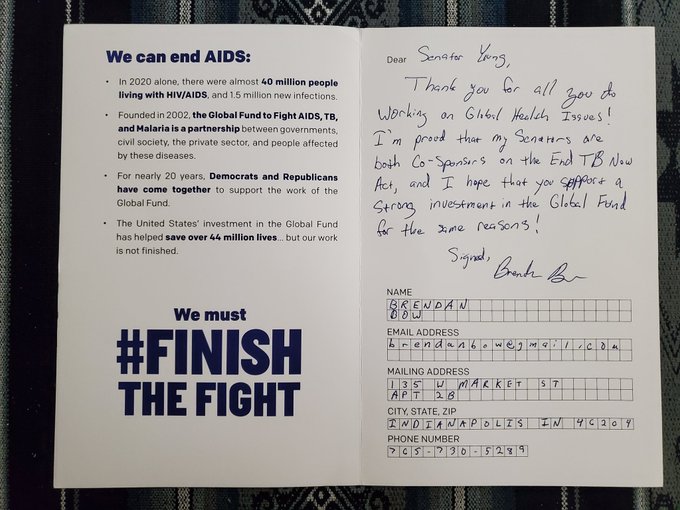 We can end AIDS:
• In 2020 alone, there were almost 40 million people
living with HIV/AIDS, and 1.5 million new infections.
• Founded in 2002, the Global Fund to Fight AIDS, TB,
and Malaria is a partnership between governments,
civil society, the private sector, and people affected
by these diseases.
• For nearly 20 years, Democrats and Republicans
have come together to support the work of the
Global Fund.
• The United States' investment in the Global Fund
has helped save over 44 million lives... but our work
is not finished.
We must
#FINISH
THE FIGHT
Dear Senator Young,
Thank you for all you do
working on Global Health Issues!
I'm proud that my Senators are
both Co-Sponsors on the End TB Now
Act, and I hope that you support a
strong investment in the Global Fund
for the same reasons!
Signed,
Brendan
NAME
BRENDAN
BOW
EMAIL ADDRESS
brendanbow@gmail.com
MAILING ADDRESS
135 W MARKET ST
APT 2B
CITY, STATE, ZIP
INDIANAPOLIS IN 46204
PHONE NUMBER
765-730-5289